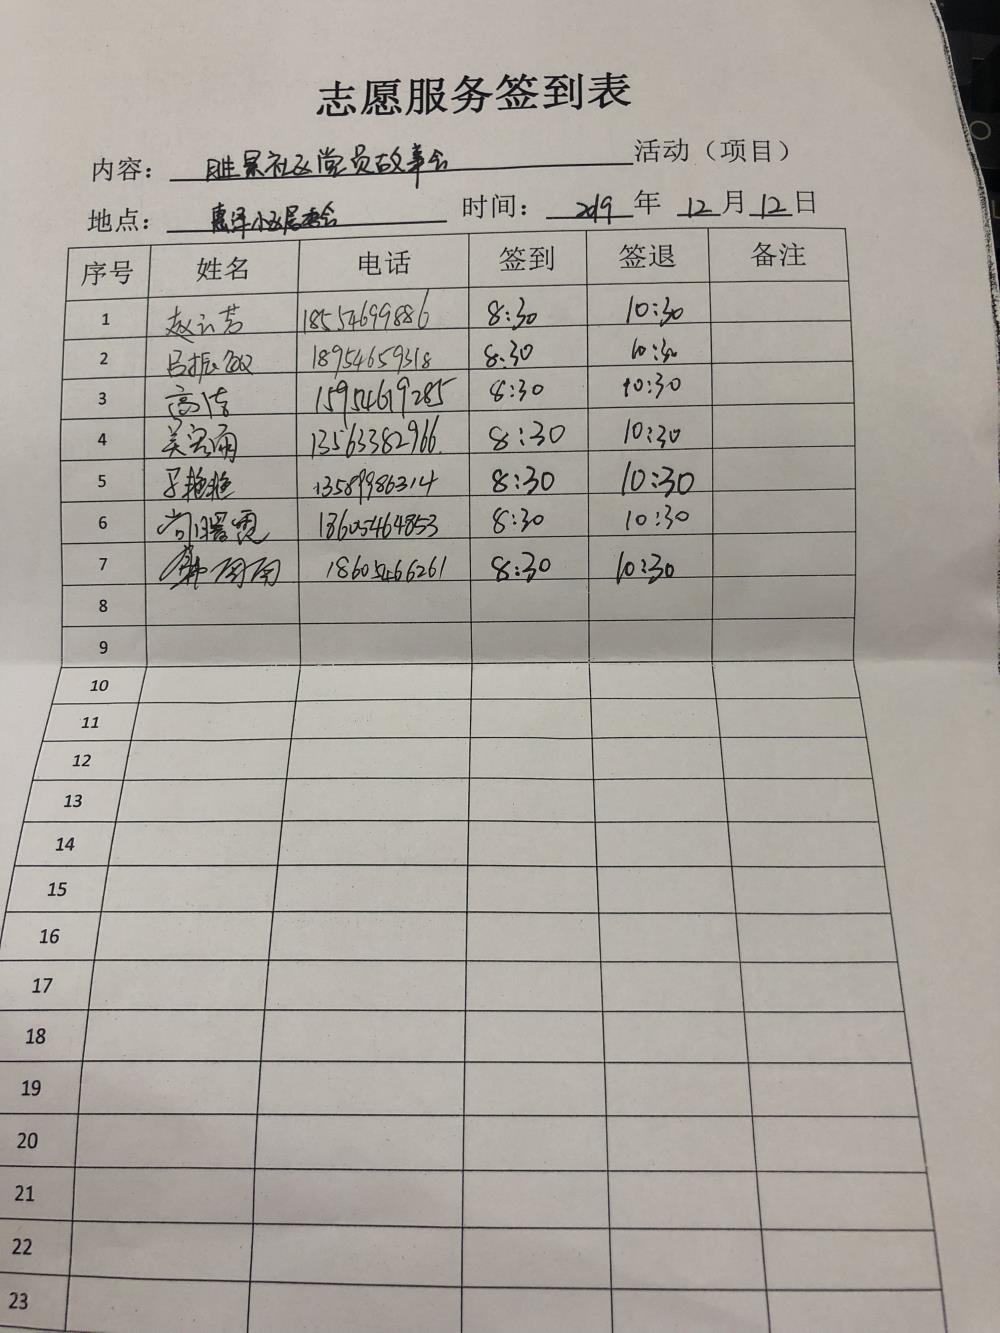 志愿服务签到表
内容：胜景社区党员故事会活动（项目）
地点：惠泽小区居委会 时间：2019年12月12日
序号 姓名 电话 签到 签退 备注
1 赵云芳 18554699886 8:30 10:30
2 吕振敏 18954659318 8:30 10:30
3 高洁 15954619285 8:30 10:30
4 13563382966 8:30 10:30
5 13589986314 8:30 10:30
6 18605464853 8:30 10:30
7 18605466261 8:30 10:30
8
9
10
11
12
13
14
15
16
17
18
19
20
21
22
23